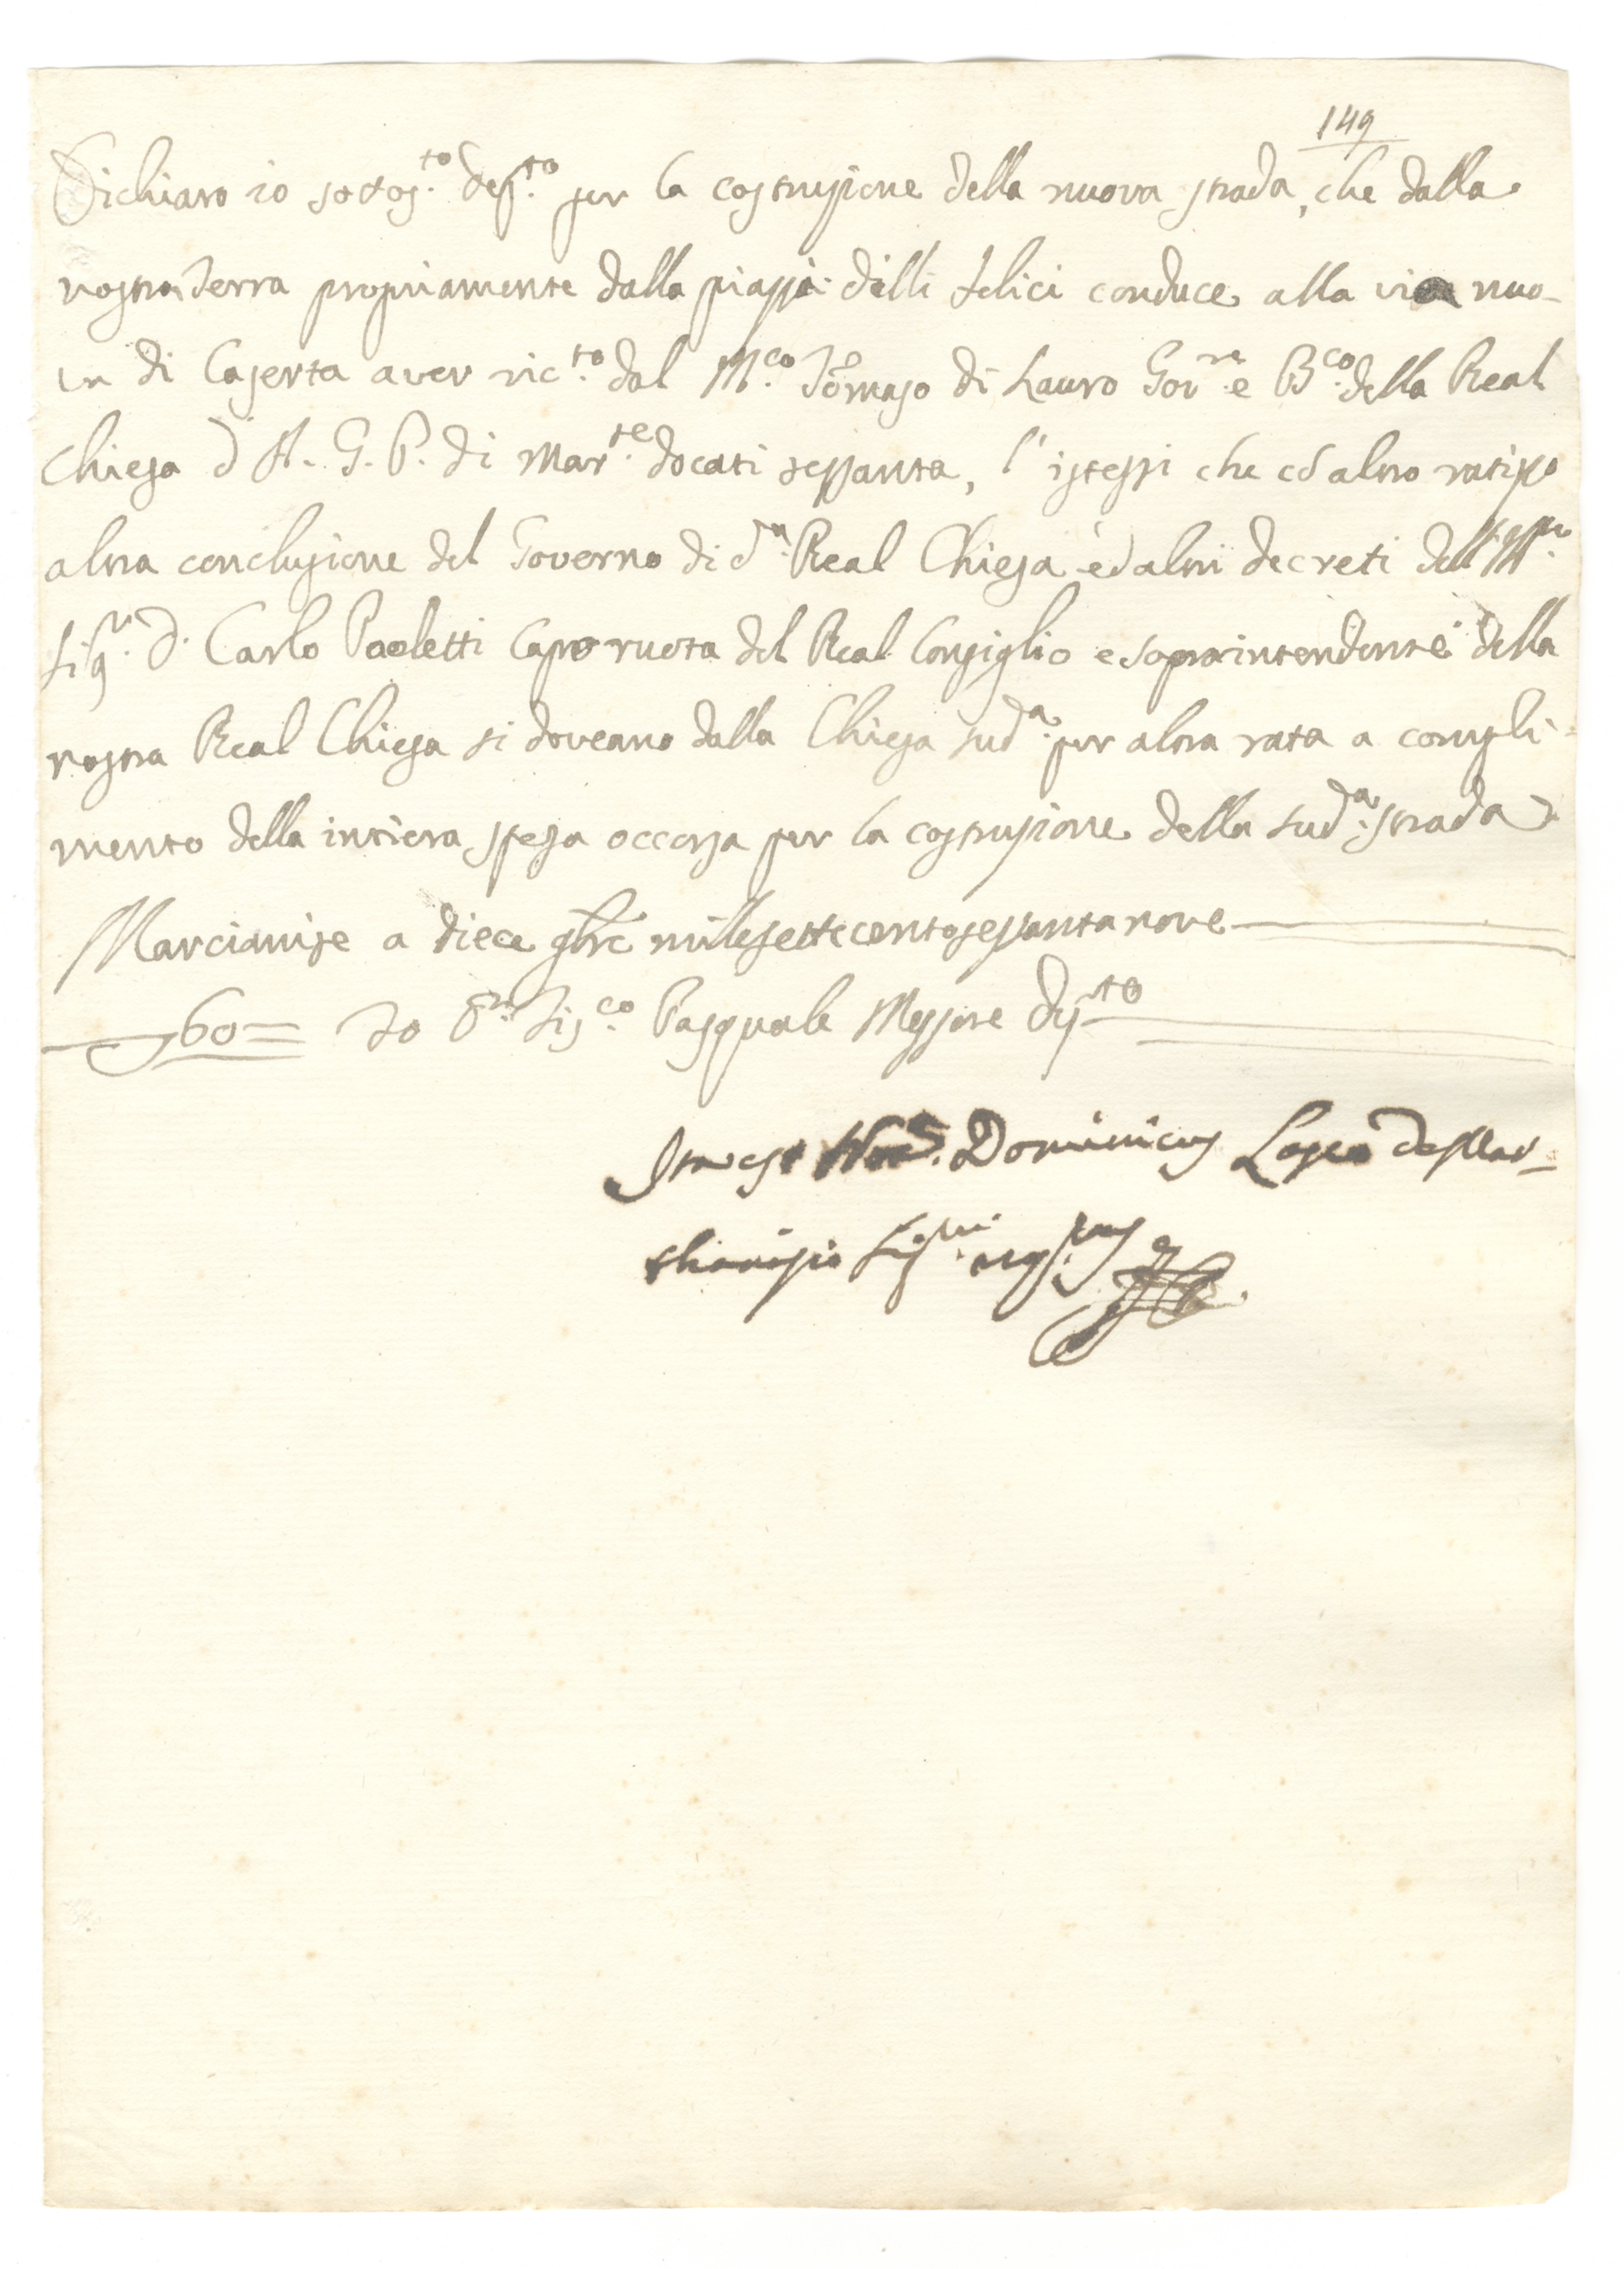 149
Dichiaro io sottos.to dep.to per la costruzione della nuova strada, che dalla
nostra Terra propriamente dalla piazza delli felici conduce alla via nuo-
va di Caserta aver ric.to dal M.co Tomaso di Lauro Gov.re e B.co della Real
Chiesa d A. G. P. di Mar.se docati sessanta, l'istessi che ed altro
altra conclusione del Governo di d.a Real Chiesa, ed altri decreti dell'
Sig.r D. Carlo Paoletti Capo ruota del Real Consiglio e soprintendente della
nostra Real Chiesa si doveano dalla Chiesa sud.a per altra rata a compli-
mento della intiera spesa occorsa per la costruzione della sud.a strada
Marcianise a diece 9bre millesettecentosessantanove
60= Io Pasquale Messore dep.to
Ita est Not. Dominicus de Mar-